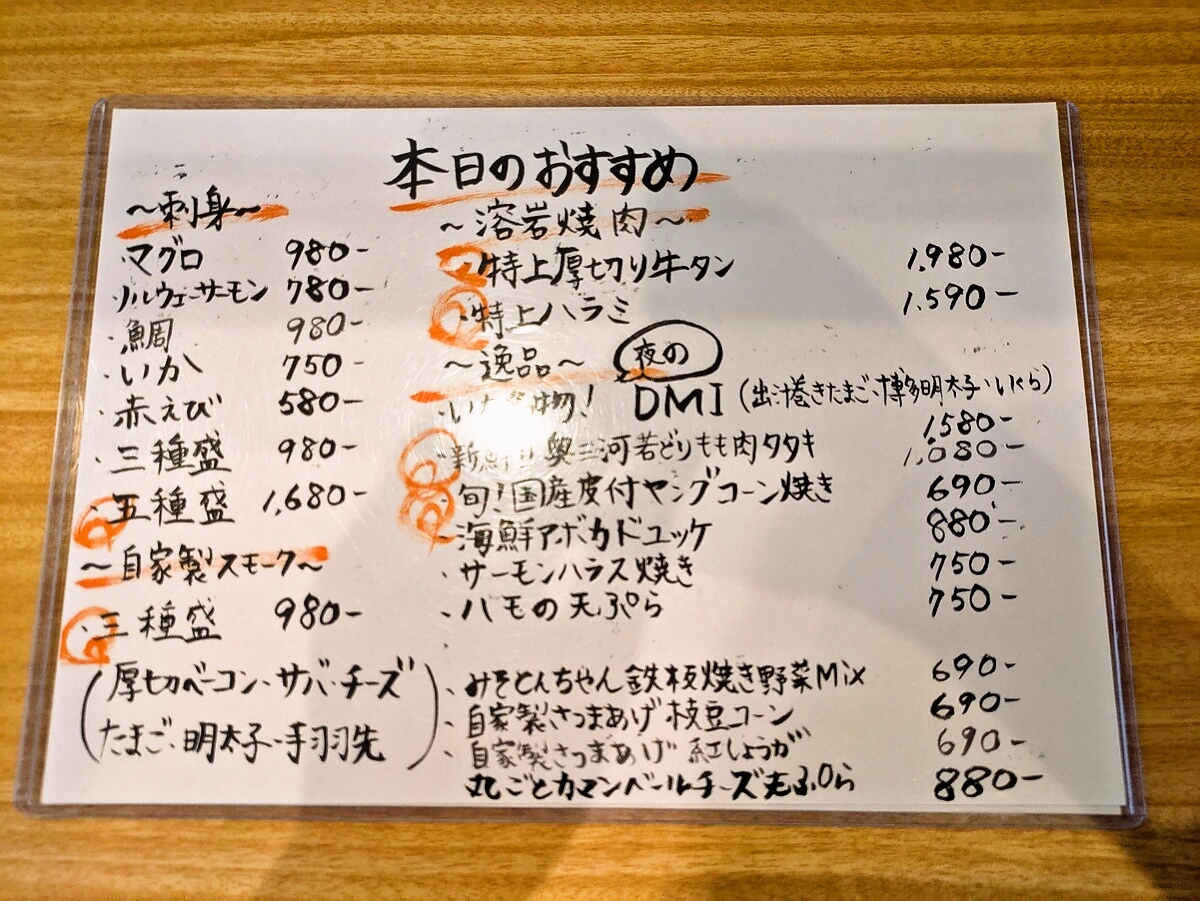 本日のおすすめ
～刺身～
・マグロ 980-
・ノルウェーサーモン 780-
・鯛 980-
・いか 750-
・赤えび 580-
・三種盛 980-
・五種盛 1,680-
～自家製スモーク～
・三種盛 980-
(厚切ベーコン・サバ・チーズ
たまご・明太子・手羽先)
～溶岩焼肉～
・特上厚切り牛タン 1,980-
・特上ハラミ 1,590-
～逸品～
夜の
物! DMI (出汁巻きたまご、博多明太子・いくら) 1580-
・新鮮 奥三河若どりもも肉タタキ 1,080-
・旬!国産皮付ヤングコーン焼き 690-
・海鮮アボカドユッケ 880-
・サーモンハラス焼き 750-
・ハモの天ぷら 750-
・みそとんちゃん鉄板焼き野菜Mix 690-
・自家製さつまあげ 枝豆コーン 690-
・自家製さつまあげ 紅しょうが 690-
丸ごとカマンベールチーズ天ぷら 880-